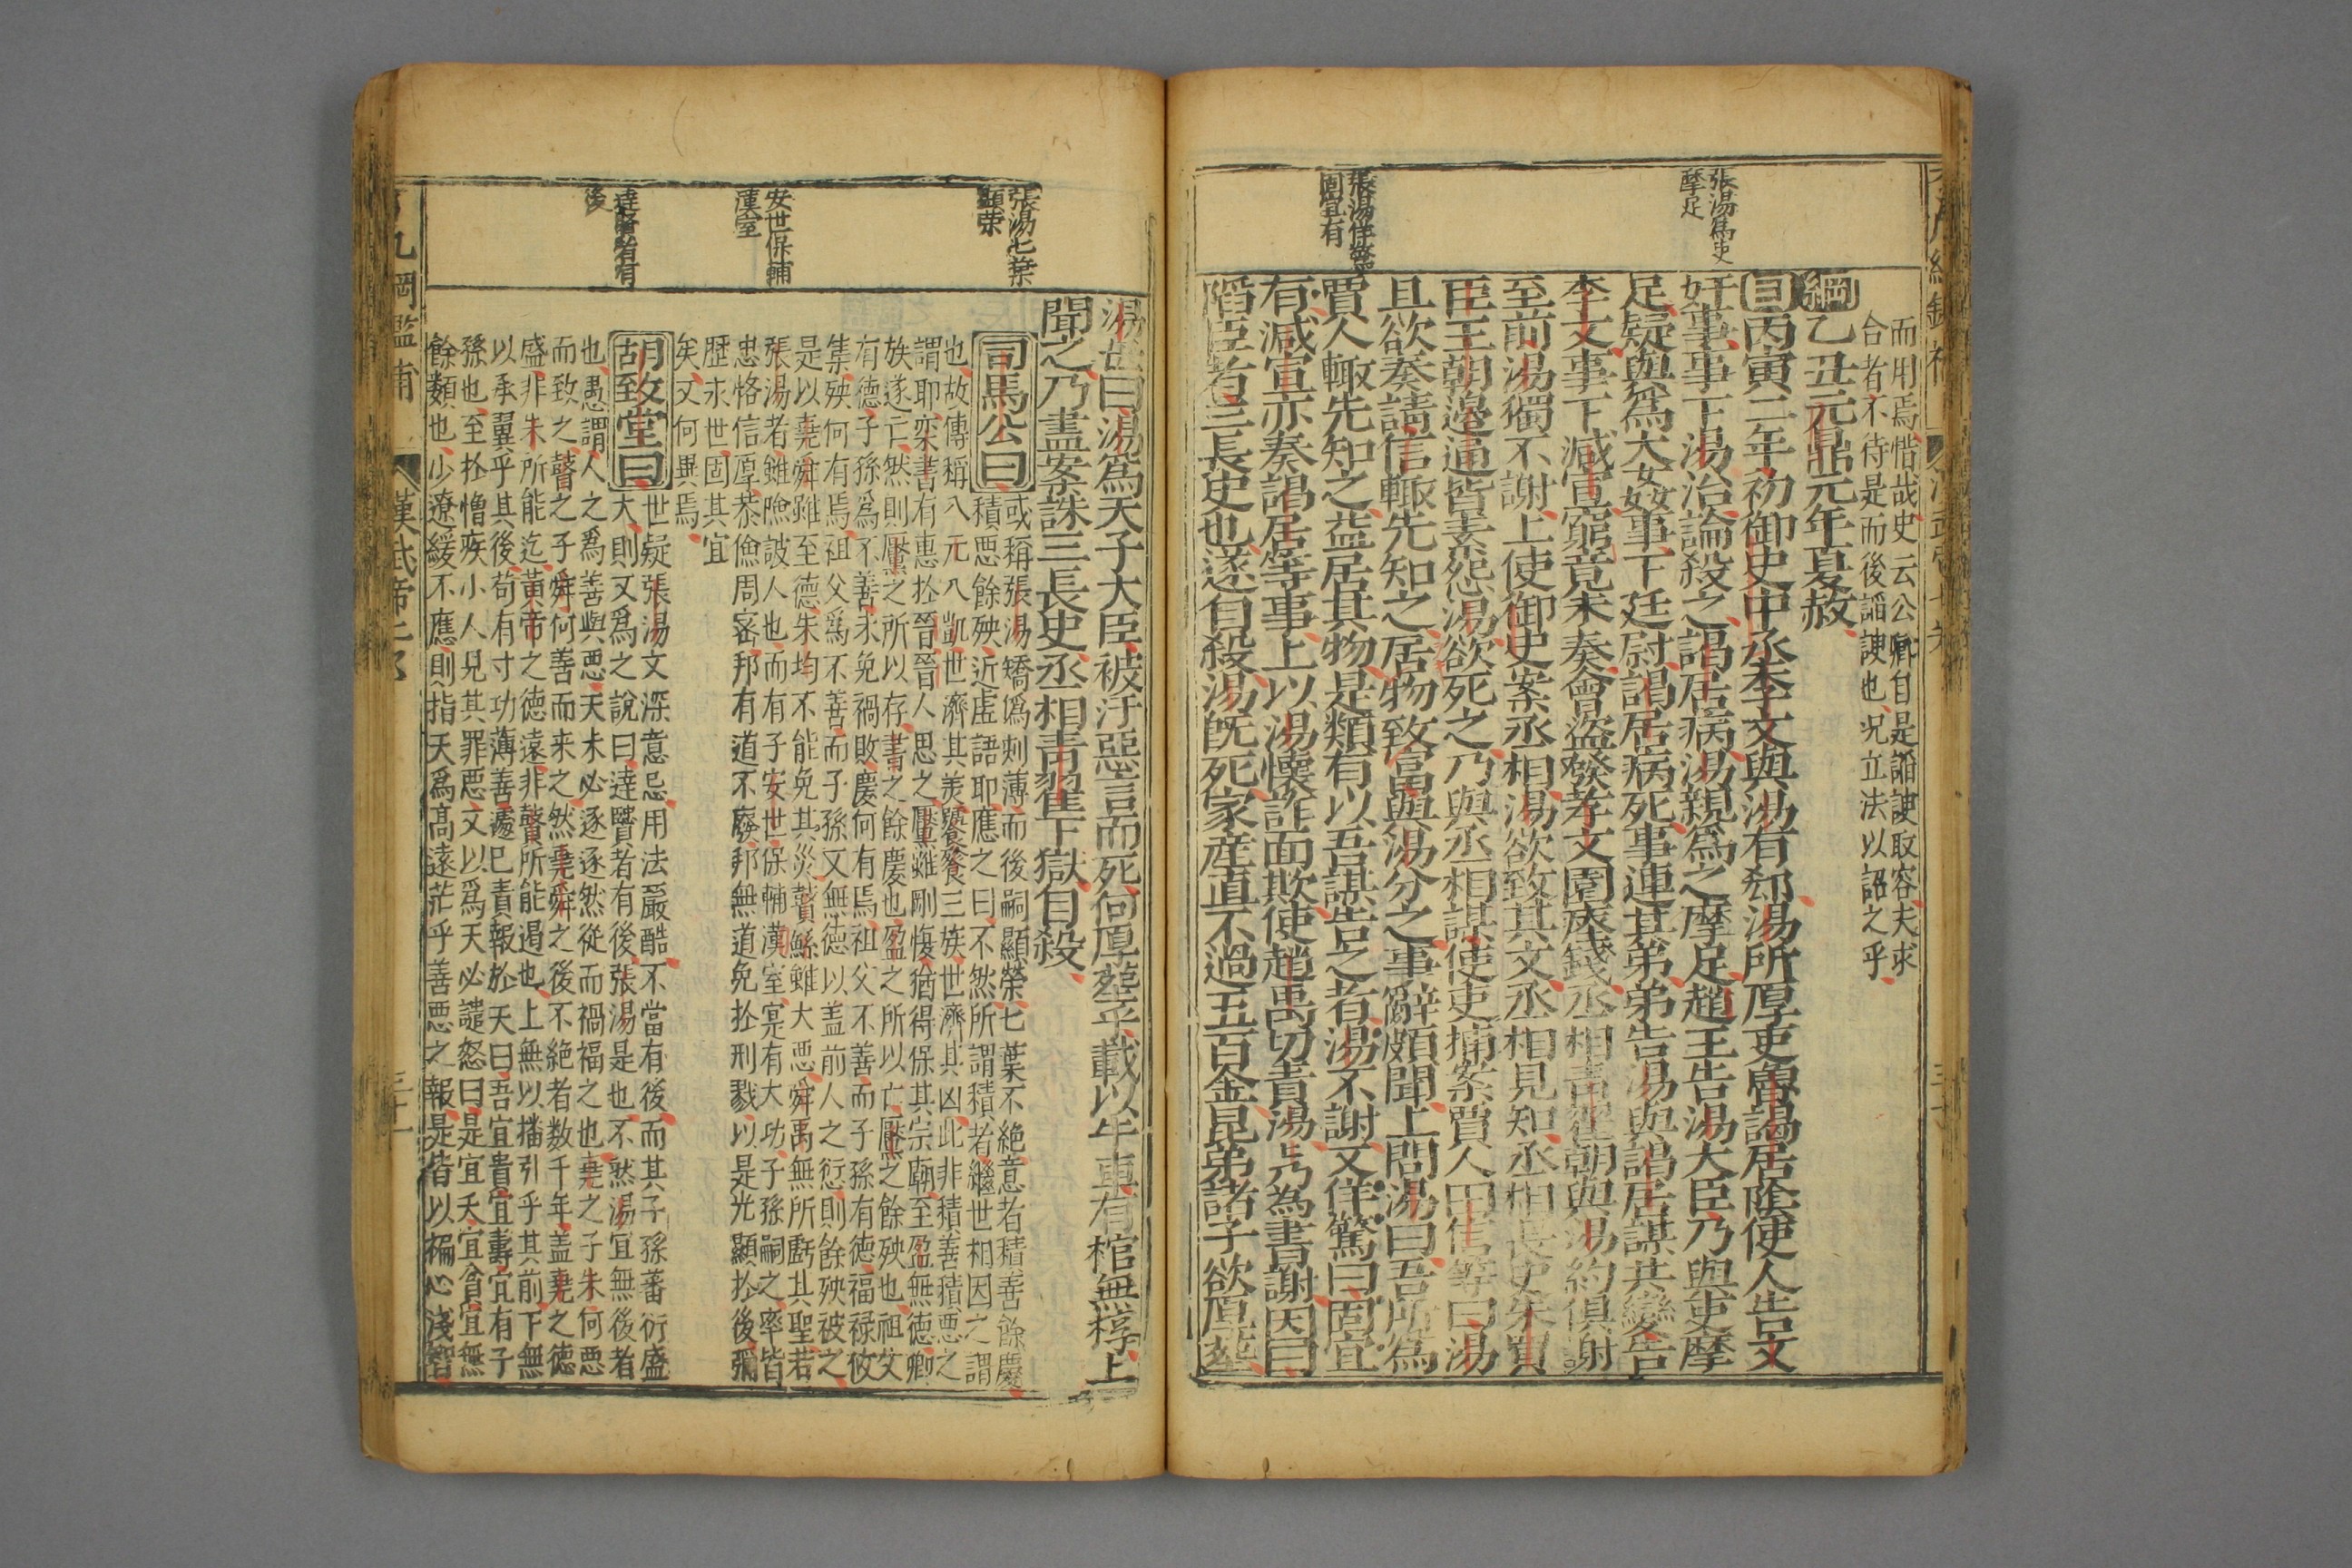 張湯為吏
摩足
張湯佯驚
固宜有
而用焉惜哉史云公卿自是謟諛取容夫求
合者不待是而後謟諛也况立法以詔之乎
綱乙丑元鼎元年夏赦
目丙寅二年初御史中丞李文與湯有郄湯所厚吏魯謁居陰使人告文
奸事事下湯治論殺之謁居病湯親為之摩足趙王告湯大臣乃與吏摩
足疑與為大姦事下廷尉謁居病死事連其弟弟告湯與謁居謀共變告
李文事下減宣窮竟未奏會盜發孝文園瘞錢丞相青翟朝與湯約俱謝
至前湯獨不謝上使御史案丞相湯欲致其文丞相見知丞相長史朱買
臣王朝邊通皆素怨湯欲死之乃與丞相謀使吏捕案賈人田信等曰湯
且欲奏請信輙先知之居物致富與湯分之事辭頗聞上問湯曰吾所為
賈人輙先知之益居其物是類有以吾謀告之者湯不謝又佯驚曰固宜
有減宣亦奏謁居等事上以湯懷詐面欺使趙禹切責湯湯乃為書謝因曰
陷臣者三長史也遂自殺湯旣死家産直不過五百金昆弟諸子欲厚葬
張湯七葉
顯荣
安世保輔
漢室
達賢者有
後
湯母曰湯為天子大臣被汙惡言而死何厚葬乎載以牛車有棺無椁上
聞之乃盡案誅三長史丞相青翟下獄自殺
司馬公曰或稱張湯矯偽刻薄而後嗣顯榮七葉不絶意者積善餘慶
積惡餘殃近虛語耶應之曰不然所謂積者繼世相因之謂
也故傳稱八元八凱世濟其美饕餮三族世濟其凶此非積善積惡之
謂耶欒書有惠扵晉晉人思之黶雖剛愎猶得保其宗廟至盈無德卿
族遂亡然則黶之所以存書之餘慶也盈之所以亡黶之餘殃也祖父
有德子孫為不善未免禍敗慶何有焉祖父不善而子孫有德福禄攸
集殃何有焉祖父為不善而子孫又無德以盖前人之愆則餘殃被之
是以堯舜雖至德朱均不能免其災瞽鯀雖大惡舜禹無所虧其聖若
張湯者雖險詖人也而有子安世保輔漢室寔有大功子孫嗣之率皆
忠恪信厚恭儉周宻邦有道不廢邦無道免扵刑戮以是光顯扵後彌
歴永世固其宜
矣又何異焉
胡致堂曰世疑張湯文深意忌用法嚴酷不當有後而其子孫蕃衍盛
大則又為之說曰達賢者有後張湯是也不然湯宜無後者
也愚謂人之為善與惡天未必逐逐然從而禍福之也堯之子朱何惡
而致之瞽之子舜何善而来之然堯舜之後不絶者数千年盖堯之德
盛非朱所能迄黃帝之德遠非瞽所能遏也上無以播引乎其前下無
以承翼乎其後苟有寸功薄善遽已責報扵天曰吾宜貴宜壽宜有子
孫也至扵憎疾小人見其罪惡又以為天必譴怒曰是宜夭宜貧宜無
餘類也少遼緩不應則指天為髙遠茫乎善惡之報是皆以褊心淺智